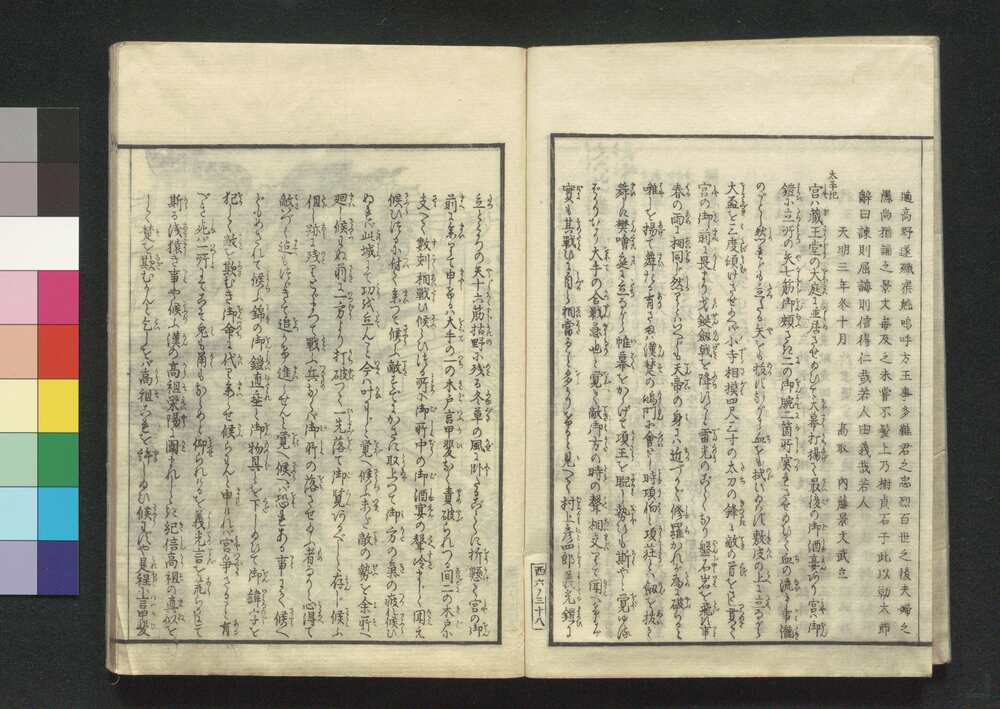 遁高野遂殲衆醜嗚呼方王事多難君之忠烈百世之後夫婦之
愚尚指誦之景文毎及之未嘗不髪上乃樹貞石于此以勒太節
辭曰諫則屈譎則信得仁哉若人由義哉若人
天明三年冬十月 高取 内藤景文武之
太平記
宮ハ蔵王堂の大庭に並居させ給ひて大幕打揚て最後の御酒宴あり宮の御
鎧に立所の矢七筋御頬さき二の御腕二箇所突れさせ給ひて血の流るゝ事瀧
のごとし然れども立たる矢をも抜たまはず流るゝ血をも拭ひ給はず敷皮の上に立ながら
大盃を三度傾けさせ給へバ小寺相摸四尺三寸の太刀の鋒に敵の首をさし貫て
宮の御前に畏まり戈鋋劔戟を降らすこと電光のごとくなり盤石岩を飛す事
春の雨に相同じ然りとはいへども天帝の身には近づかで修羅かれが為に破らると
唯しを揚て舞たる有さまハ漢楚の鴻門に會せし時項伯と項荘とが劔を抜て
舞しに樊噲庭に立ながら帷幕をかゝげて項王を睨し勢ひも斯やと覚ゆる
ばかりなり大手の合戦急也と覚えて敵御方の時の聲相交りて聞えけるが
實にも其戦に自ら相當る事多かりけりと見えて村上彦四郎義光鎧に
西六ノ三十八
立ところの矢十六筋枯野に残る冬草の風に臥たるごとくに折懸て宮の御
前に参りて申けるハ大手の一の木戸言甲斐なく責破られつる間二の木戸に
支へて数刻相戦ひ候ひつる所に御所中の御酒宴の聲冷じく聞え
候ひつるに付て参つて候ふ敵すでにかさに取上つて御方の氣の疲れ候ひ
ぬれバ此城にて功を立んこと今ハ叶はじと覚え候ふ未だ敵の勢を余所へ
廻し候はぬ前に一方より打破つて一先落て御覧あるべしと存じ候ふ
但し跡に残りとゞまつて戦ふ兵なくバ御所の落させ給ふ者なりと心得て
敵いづくまでもつゞきて追かけ進らせんと覚え候へバ恐ある事にて候へ
ども召されて候ふ錦の御鎧直垂と御物具とを下し給ひて御諱字を
犯して敵を欺むき御命に代り参らせ候らはんと申ければ宮争でかさる事有
べき死なバ一所にてこそ兎も角もならめと仰られけるを義光言を荒らかにて
斯る浅猿き事や候ふ漢の高祖滎陽に圍まれし時紀信高祖の真似を
して楚を欺むかんと乞しをバ高祖これを許し給ひ候はずや是程に言甲斐